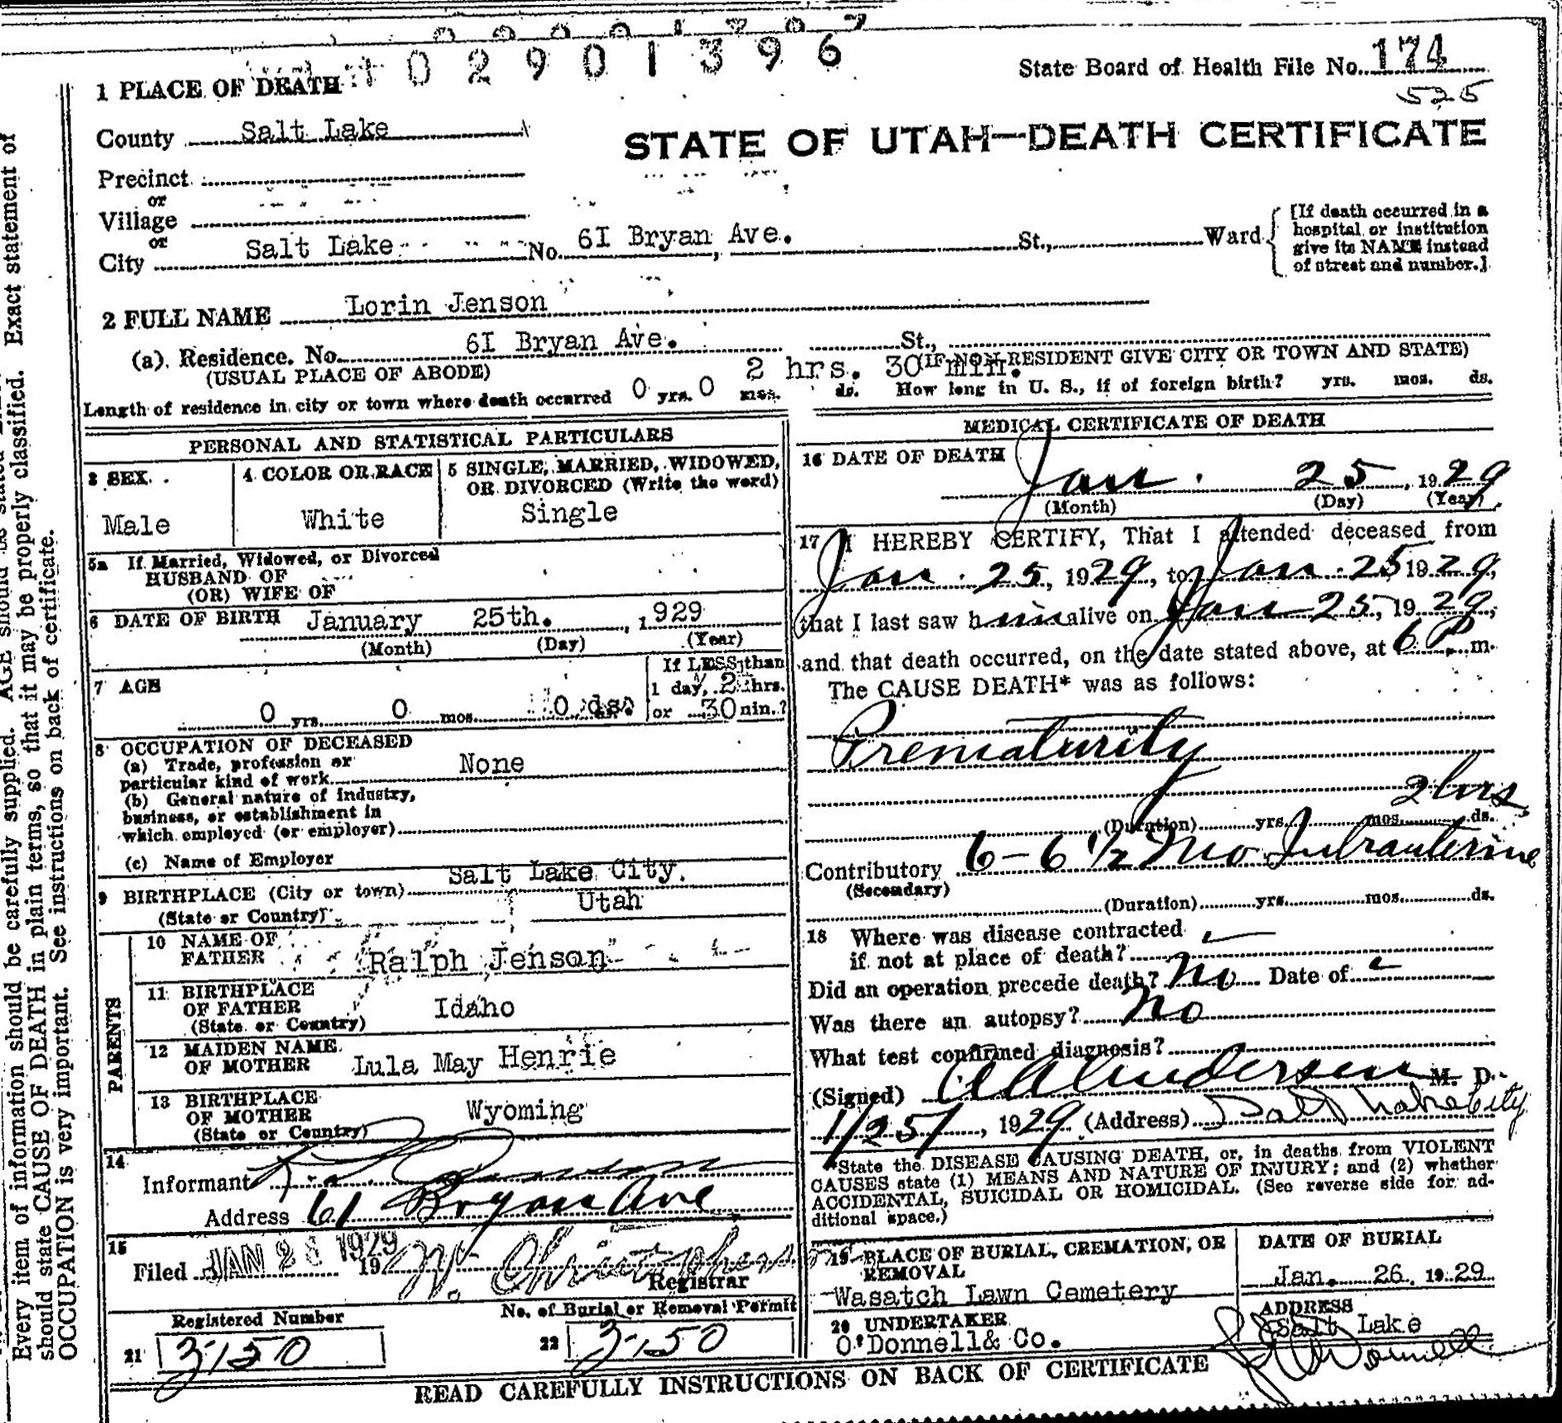 1 0 2 9 0 1 3 9 6
State Board of Health File No. 174
525
1 PLACE OF DEATH
County Salt Lake
STATE OF UTAH—DEATH CERTIFICATE
Precinct
or
Village
or
City Salt Lake No. 6I Bryan Ave. St., Ward
[If death occurred in a
hospital or institution
give its NAME instead
of street and number.]
2 FULL NAME Lorin Jenson
(a). Residence. No. 6I Bryan Ave. St.,
(USUAL PLACE OF ABODE) (IF NON-RESIDENT GIVE CITY OR TOWN AND STATE)
2 hrs. 30 min.
Length of residence in city or town where death occurred 0 yrs. 0 mos. ds. How long in U. S., if of foreign birth? yrs. mos. ds.
PERSONAL AND STATISTICAL PARTICULARS
3 SEX
Male
4 COLOR OR RACE
White
5 SINGLE, MARRIED, WIDOWED,
OR DIVORCED (Write the word)
Single
5a If Married, Widowed, or Divorced
HUSBAND OF
(OR) WIFE OF
6 DATE OF BIRTH January 25th. , 1929
(Month) (Day) (Year)
7 AGE
0 yrs. 0 mos. 0 ds.
If LESS than
1 day, 2 hrs.
or 30 min.?
8 OCCUPATION OF DECEASED
(a) Trade, profession or
particular kind of work None
(b) General nature of industry,
business, or establishment in
which employed (or employer)
(c) Name of Employer
9 BIRTHPLACE (City or town) Salt Lake City.
(State or Country) Utah
PARENTS
10 NAME OF
FATHER Ralph Jenson
11 BIRTHPLACE
OF FATHER Idaho
(State or Country)
12 MAIDEN NAME
OF MOTHER Lula May Henrie
13 BIRTHPLACE
OF MOTHER Wyoming
(State or Country)
14
Informant
Address 61 Bryan Ave
15
Filed JAN 28 1929 19 W. Christopherson
Registrar
Registered Number
21 3150
No. of Burial or Removal Permit
22 3150
MEDICAL CERTIFICATE OF DEATH
16 DATE OF DEATH
Jan. 25, 1929
(Month) (Day) (Year)
17 I HEREBY CERTIFY, That I attended deceased from
Jan. 25, 1929, to Jan. 25 1929,
that I last saw him alive on Jan 25, 1929,
and that death occurred, on the date stated above, at 6 P. m.
The CAUSE DEATH* was as follows:
Prematurity
2 hrs
(Duration) yrs. mos. ds.
Contributory 6-6 1/2 Mo Intrauterine
(Secondary)
(Duration) yrs. mos. ds.
18 Where was disease contracted
if not at place of death? —
Did an operation precede death? No Date of
Was there an autopsy? No
What test confirmed diagnosis?
(Signed) A A Anderson M. D.
1/25/, 1929 (Address) Salt Lake City
*State the DISEASE CAUSING DEATH, or, in deaths from VIOLENT
CAUSES state (1) MEANS AND NATURE OF INJURY; and (2) whether
ACCIDENTAL, SUICIDAL OR HOMICIDAL. (See reverse side for ad-
ditional space.)
19 PLACE OF BURIAL, CREMATION, OR
REMOVAL
Wasatch Lawn Cemetery
DATE OF BURIAL
Jan. 26, 1929
20 UNDERTAKER
O'Donnell & Co.
ADDRESS
Salt Lake
READ CAREFULLY INSTRUCTIONS ON BACK OF CERTIFICATE
Every item of information should be carefully supplied. AGE should be stated
should state CAUSE OF DEATH in plain terms, so that it may be properly classified. Exact statement of
OCCUPATION is very important. See instructions on back of certificate.